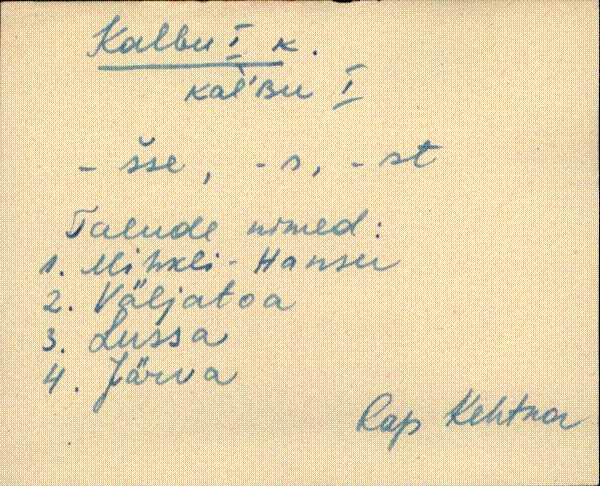 Kalbu I k.
kal̀'ʙu I
- šse, -s, -st
Talude nimed:
1. Mihkli-Hansu
2. Väljatoa
3. Lussa
4. Järva
Rap Kehtna